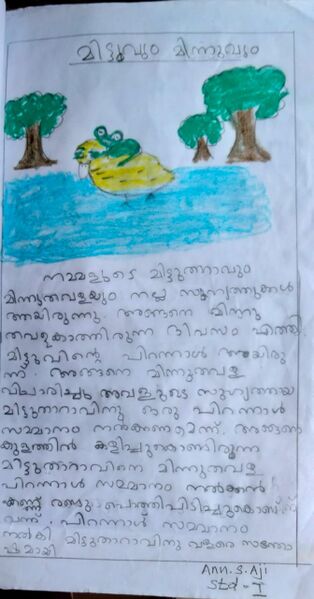 മിട്ടുവും മിന്നുവും
നമ്മളുടെ മിട്ടുതാറാവും
മിന്നുതവളയും നല്ല സുഹൃത്തുക്കൾ
ആയിരുന്നു. അങ്ങനെ മിന്നു
തവളകാത്തിരുന്ന ദിവസം എത്തി.
മിട്ടുവിന്റെ പിറന്നാൾ ആയിരു
ന്ന്. അങ്ങനെ മിന്നുതവള
വിചാരിച്ചു അവളുടെ സുഹൃത്തായ
മിട്ടുതാറാവിനു ഒരു പിറന്നാൾ
സമ്മാനം നൽക്കണമെന്ന്. അങ്ങനെ
കുളത്തിൻ കളിച്ചുകൊണ്ടിരുന്ന
മിട്ടുതാറാവിനെ മിന്നുതവള
പിറന്നാൾ സമ്മാനം നൽക്കൻ
കണ്ണ് രണ്ടും പൊത്തിപിടിച്ചുകൊണ്ട്
വന്ന്. പിറന്നാൾ സമ്മാനം
നൽകി മിട്ടുതാറാവിനു വളരെ സന്തോ
ഷമായി
Ann. S. Aji
Std - I